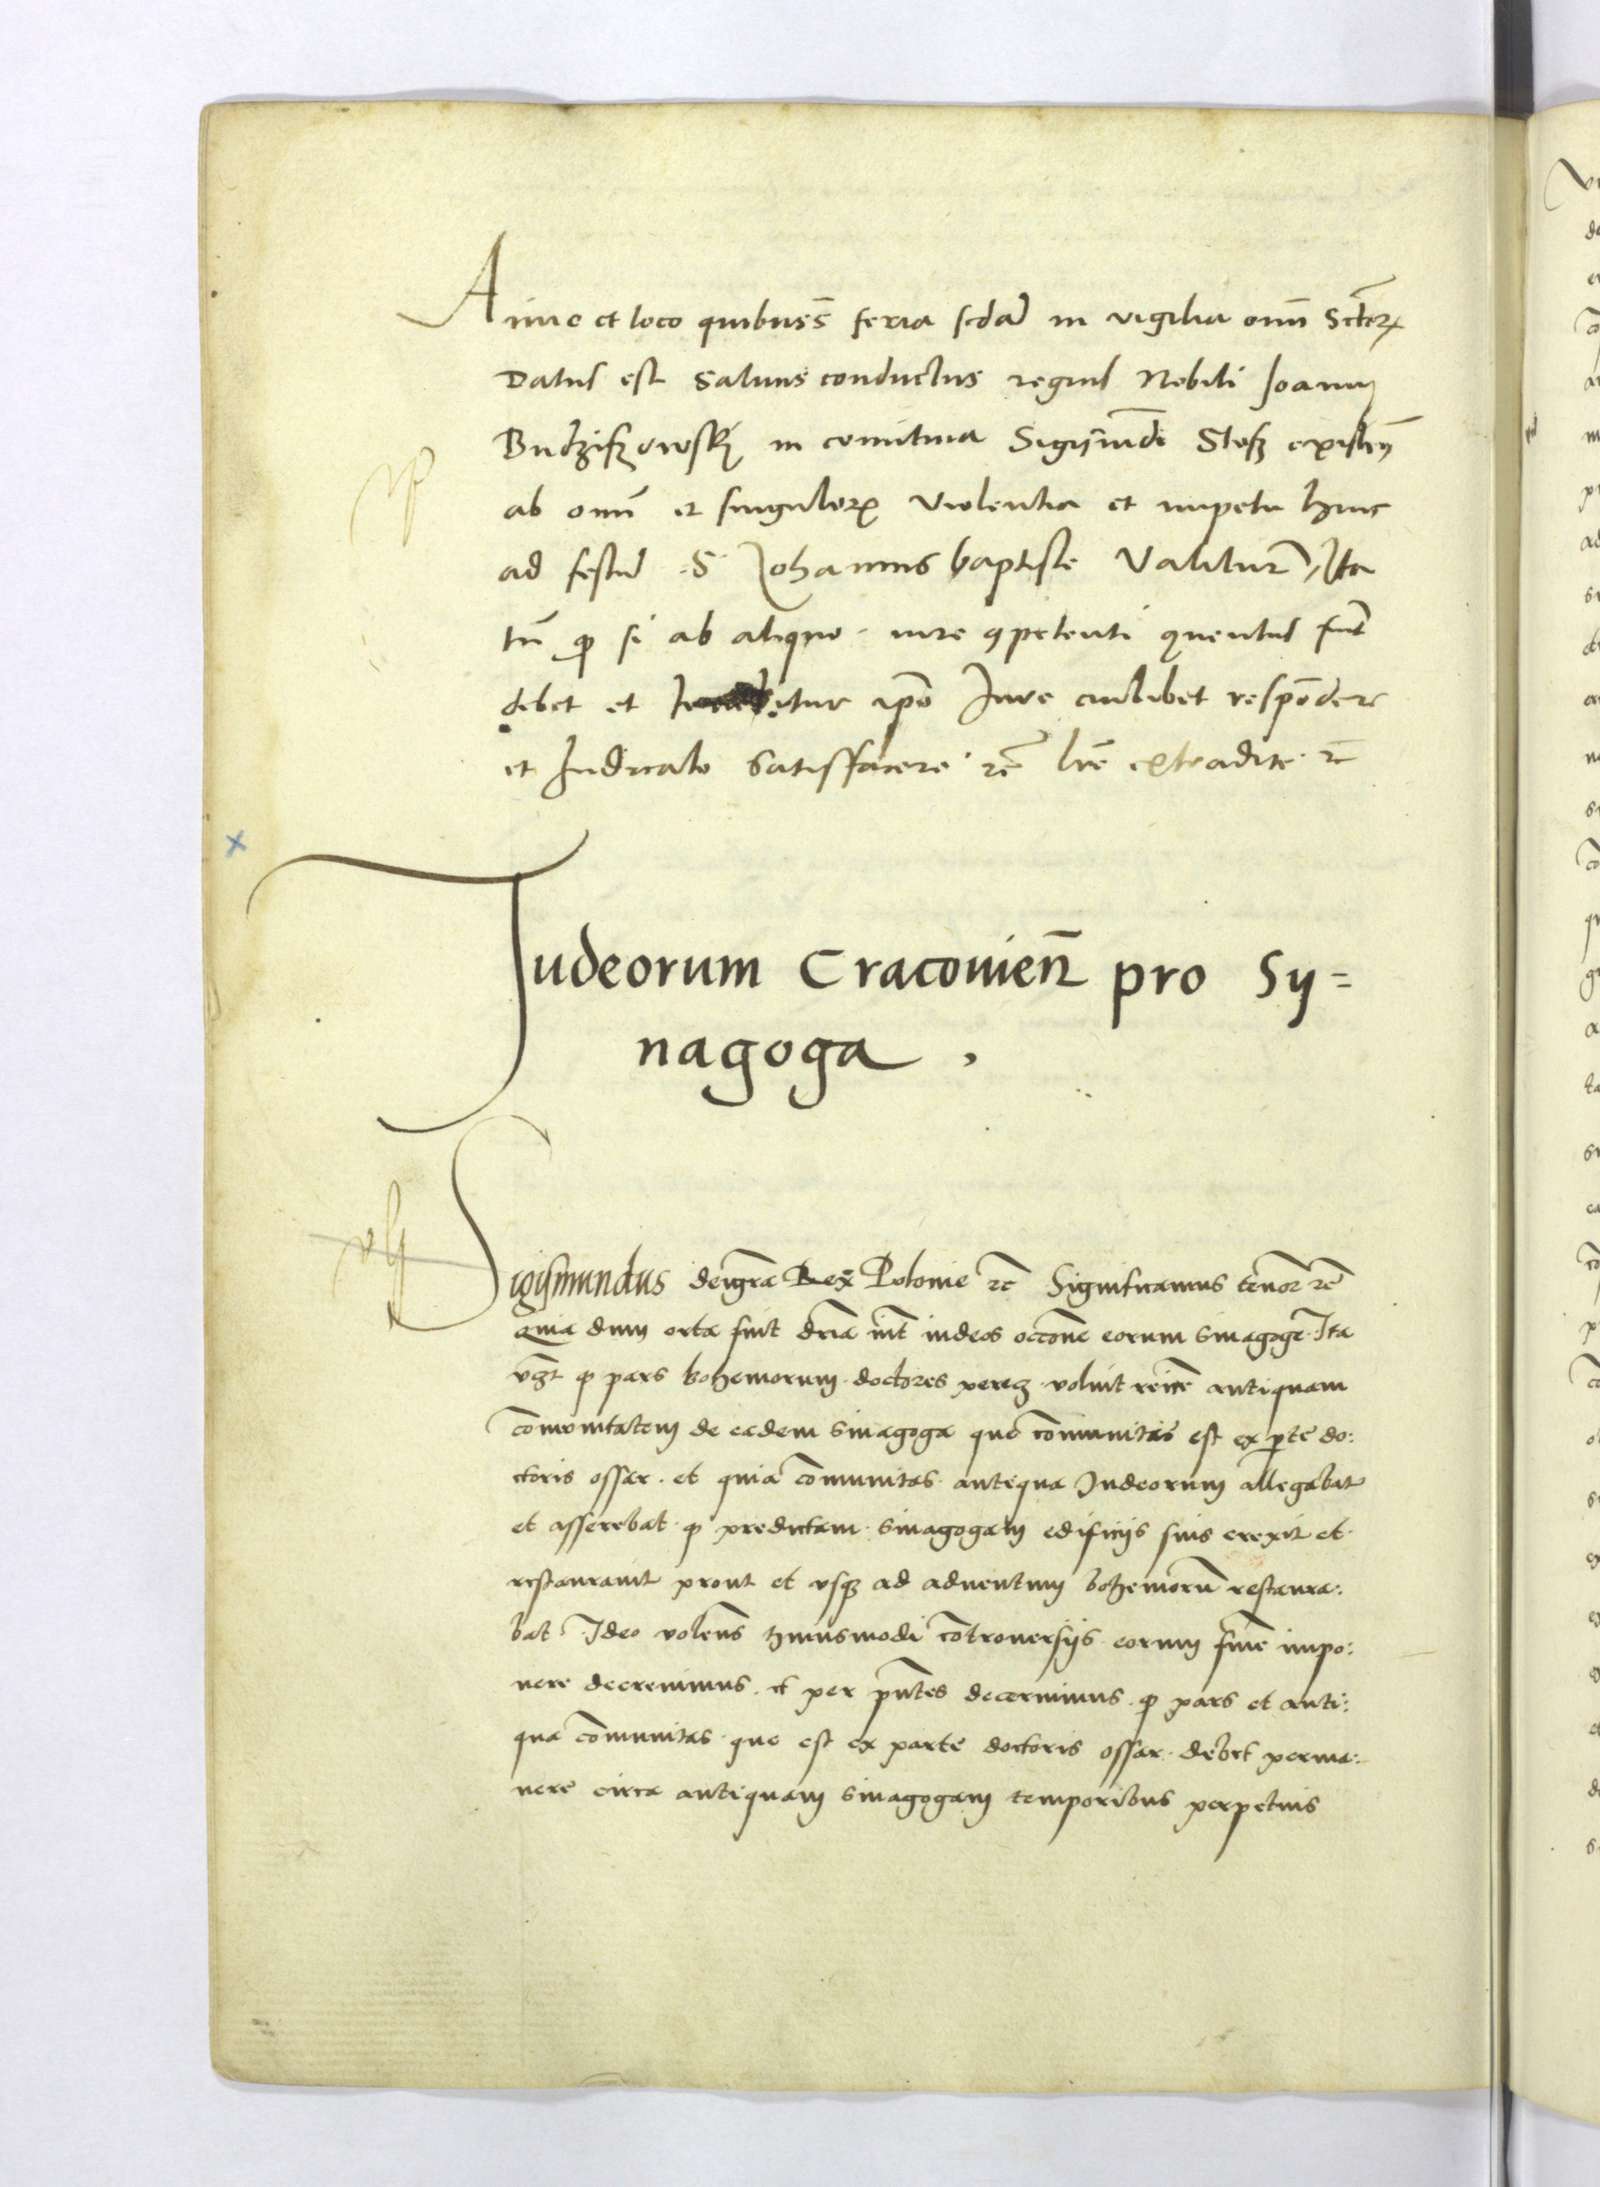 Anno et loco quibus s̄ feria scdā in vigilia om̄ Sctorꝝ
Datus est Saluus conductus regius Nobili Joanni
Budziszowskÿ in comitiua Sigismūdi Slosz existen̄
ab om̄ et singulorꝝ violentia et impetu hinc
ad festū S Johannis baptiste Valiturꝰ, Ita
tn̄ ꝙ si ab aliquo iure ꝯpetenti ꝯuentus fuīt
debet et tenebitur ip̄o Jure cuilibet respōdere
et Judicato satisffacere rc̄ lr̄e extradite rc̄
Judeorum Cracouien̄ pro Sy=
nagoga,
Sigismundus dei gr̄a Rex Polonie rc̄ Significamus tenor̄ rc̄
Quia dum orta fuit dr̄ia int̄ iudeos occ̄one eorum sinagoge Ita
vz̄ ꝙ pars bohemorum doctores perecz voluit reīcē antiquam
com̄unitatem de eadem sinagoga que com̄unitas est ex p̄te do:
ctoris osser et quia com̄unitas antiqua Judeorum allegabat
et asserebat ꝙ predictam sinagogam edificijs suis erexit et
restaurauit prout et vsqꝫ ad aduentum bohemorū restaura:
bat Ideo volen̄s huiusmodi cōtrouersijs eorum finē impo:
nere decreuimus et per pn̄tes decernimus ꝙ pars et anti:
qua com̄unitas que est ex parte doctoris osser debet perma:
nere circa antiquam sinagogam temporibus perpetuis